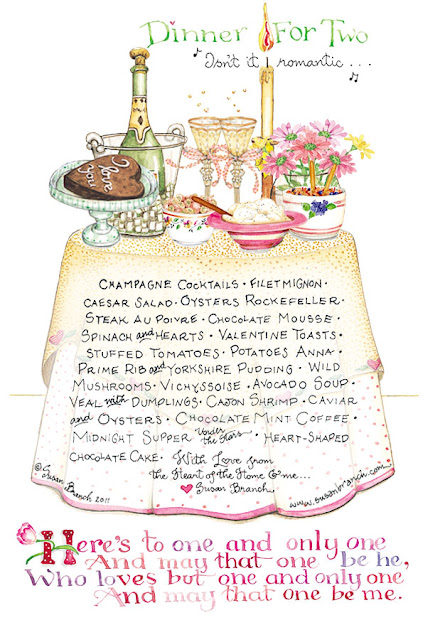 Dinner For Two
Isn't it romantic...
I love you
Champagne Cocktails · Filet Mignon ·
Caesar Salad · Oysters Rockefeller ·
Steak Au Poivre · Chocolate Mousse ·
Spinach and Hearts · Valentine Toasts ·
Stuffed Tomatoes · Potatoes Anna ·
Prime Rib and Yorkshire Pudding · Wild
Mushrooms · Vichyssoise · Avocado Soup ·
Veal with Dumplings · Cajon Shrimp · Caviar
and Oysters · Chocolate Mint Coffee ·
Midnight Supper Under the Stars · Heart-Shaped
Chocolate Cake · With Love from
the Heart of the Home & me...
♥ Susan Branch
© Susan Branch 2011
www.susanbranch.com
Here's to one and only one
And may that one be he,
Who loves but one and only one
And may that one be me.